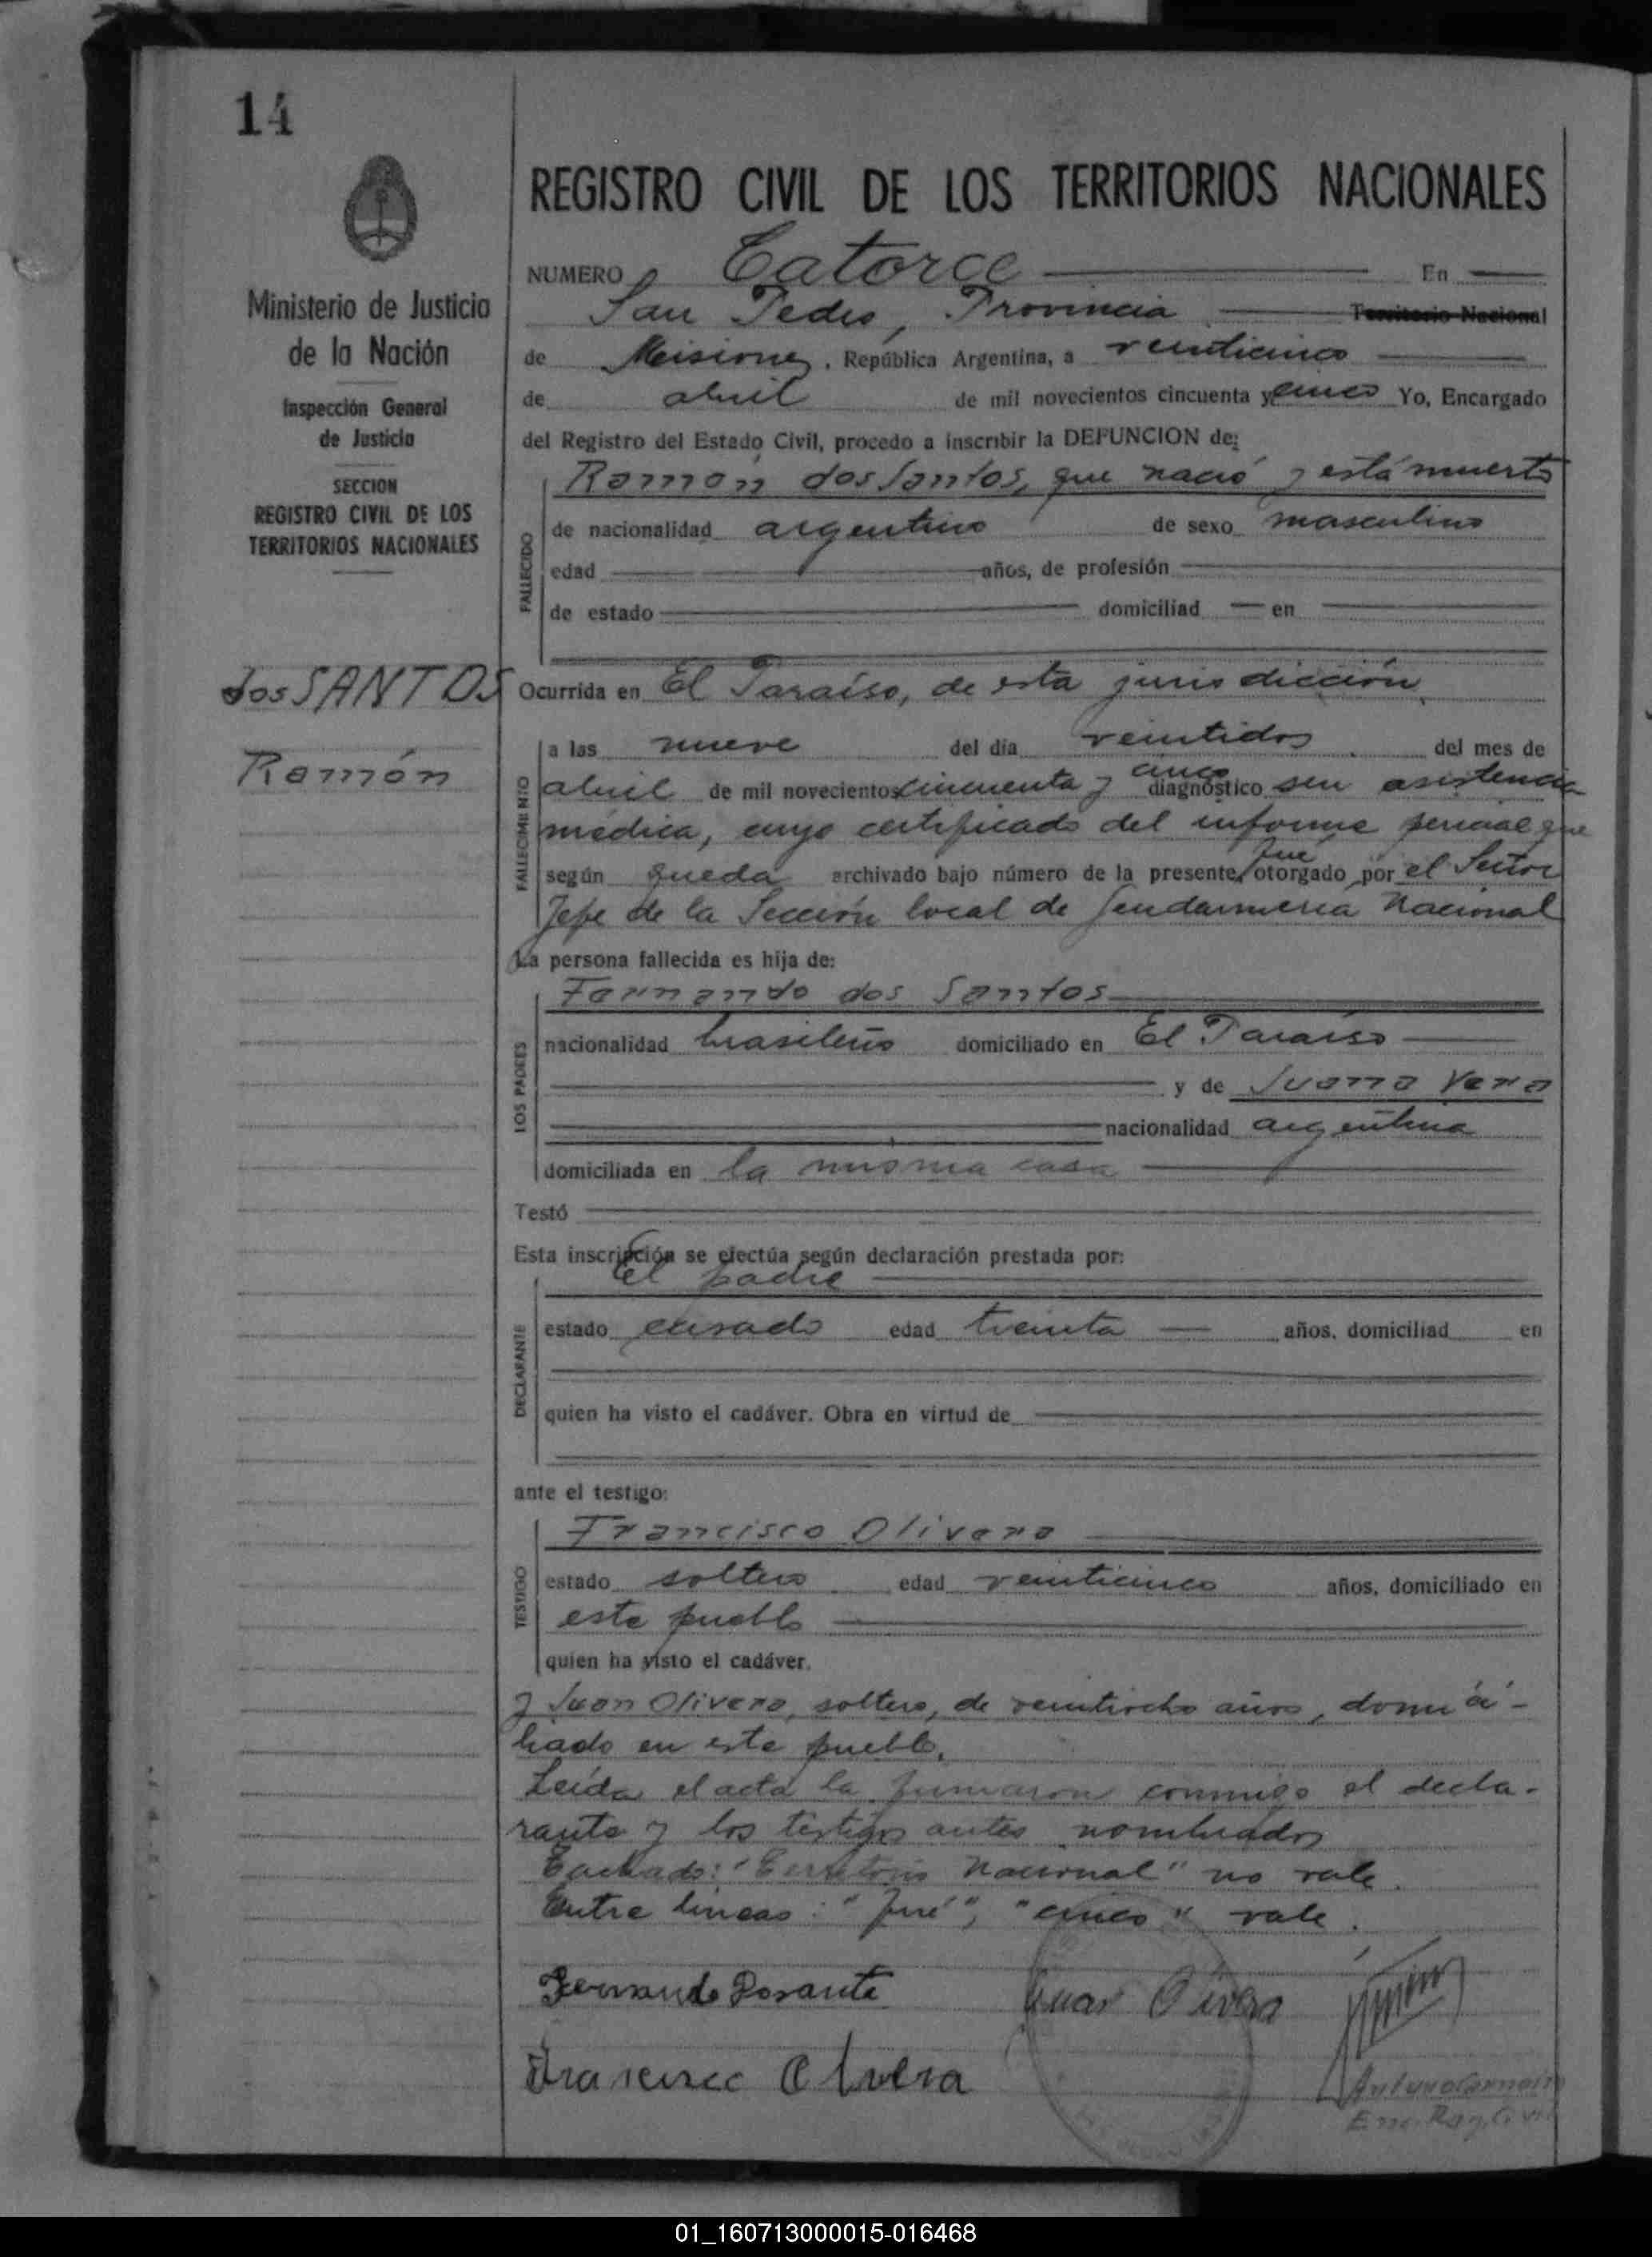 14
Ministerio de Justicia
de la Nación
Inspección General
de Justicia
SECCION
REGISTRO CIVIL DE LOS
TERRITORIOS NACIONALES
dos SANTOS
Ramón
REGISTRO CIVIL DE LOS TERRITORIOS NACIONALES
NUMERO Catorce En
San Pedro, Provincia Territorio Nacional
de Misiones, República Argentina, a veinticinco
de abril de mil novecientos cincuenta y cinco Yo, Encargado
del Registro del Estado Civil, procedo a inscribir la DEFUNCION de:
FALLECIDO
Ramón dos Santos, que nació y está muerto
de nacionalidad argentino de sexo masculino
edad años, de profesión
de estado domiciliad en
Ocurrida en El Paraíso, de esta jurisdicción
FALLECIMIENTO
a las nueve del día veintidos del mes de
abril de mil novecientos cincuenta y cinco diagnóstico sin asistencia
médica, cuyo certificado del informe que
según queda archivado bajo número de la presente, fué otorgado por el Señor
Jefe de la Sección local de Gendarmeria Nacional
La persona fallecida es hija de:
LOS PADRES
Fernando dos Santos
nacionalidad brasileño domiciliado en El Paraíso
y de Juana Vera
nacionalidad argentina
domiciliada en la misma casa
Testó
Esta inscripción se efectúa según declaración prestada por:
DECLARANTE
El padre
estado casado edad treinta años, domiciliad en
quien ha visto el cadáver. Obra en virtud de
ante el testigo:
TESTIGO
Francisco Olivera
estado soltero edad veinticinco años, domiciliado en
este pueblo
quien ha visto el cadáver.
y Juan Olivera, soltero, de veintiocho años, domici-
liado en este pueblo.
Leída el acta la firmaron conmigo el decla-
rante y los testigos antes nombrados
Tachado: "Territorio Nacional" no vale.
Entre líneas: "fué", "cinco" vale.
Fernando Dosante
Juan Olivera
Francisco Olivera
Enc. Reg. Civil
01_160713000015-016468